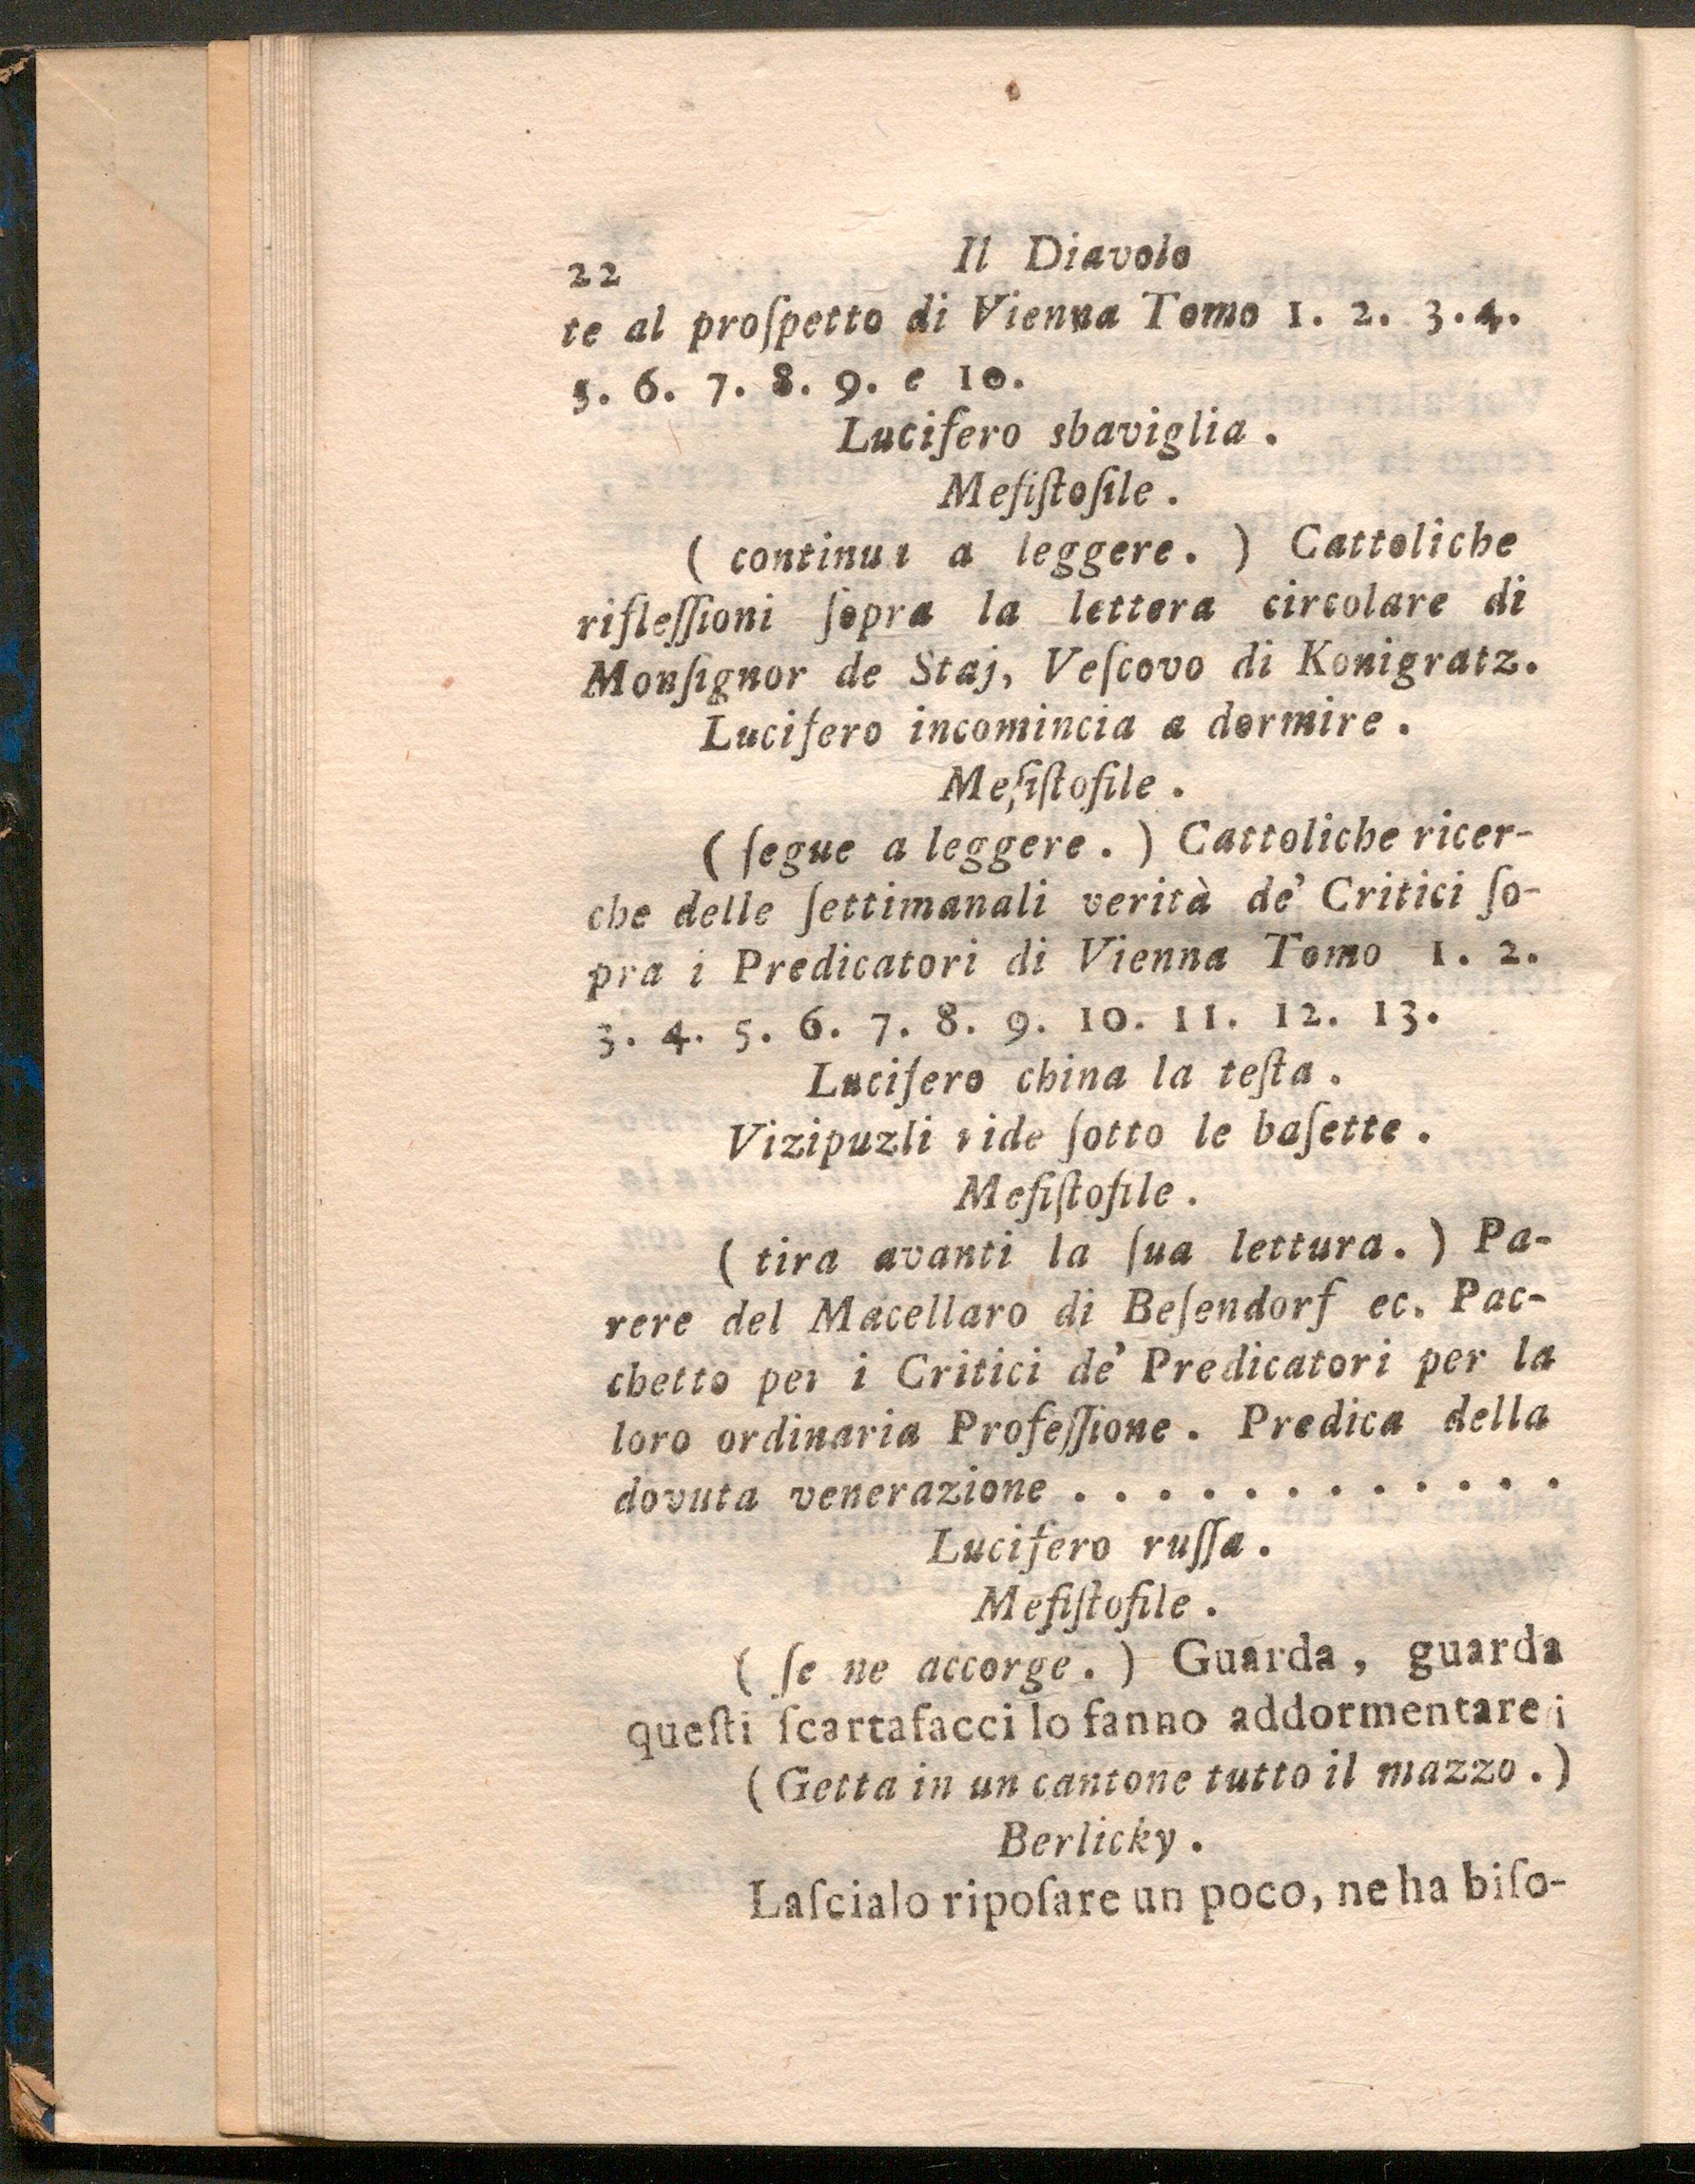 22 Il Diavolo
te al proſpetto di Vienna Tomo 1. 2. 3. 4.
5. 6. 7. 8. 9. e 10.
Lucifero sbaviglia.
Mefiſtofile.
( continua a leggere. ) Cattoliche
rifleſſioni ſopra la lettera circolare di
Monſignor de Staj, Veſcovo di Konigratz.
Lucifero incomincia a dormire.
Mefiſtofile.
( ſegue a leggere. ) Cattoliche ricer-
che delle ſettimanali verità de' Critici ſo-
pra i Predicatori di Vienna Tomo 1. 2.
3. 4. 5. 6. 7. 8. 9. 10. 11. 12. 13.
Lucifero china la teſta.
Vizipuzli ride ſotto le baſette.
Mefiſtofile.
( tira avanti la ſua lettura. ) Pa-
rere del Macellaro di Beſendorf ec. Pac-
chetto per i Critici de' Predicatori per la
loro ordinaria Profeſſione. Predica della
dovuta venerazione . . . . . . . . . . . .
Lucifero ruſſa.
Mefiſtofile.
( ſe ne accorge. ) Guarda, guarda
queſti ſcartafacci lo fanno addormentare;
(Getta in un cantone tutto il mazzo.)
Berlicky.
Laſcialo ripoſare un poco, ne ha biſo-